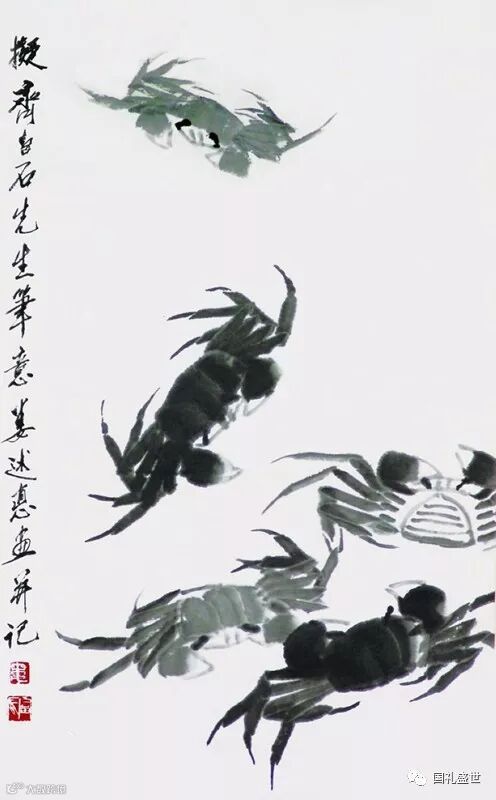 擬齊白石先生筆意婁述惠画并记
国礼盛世